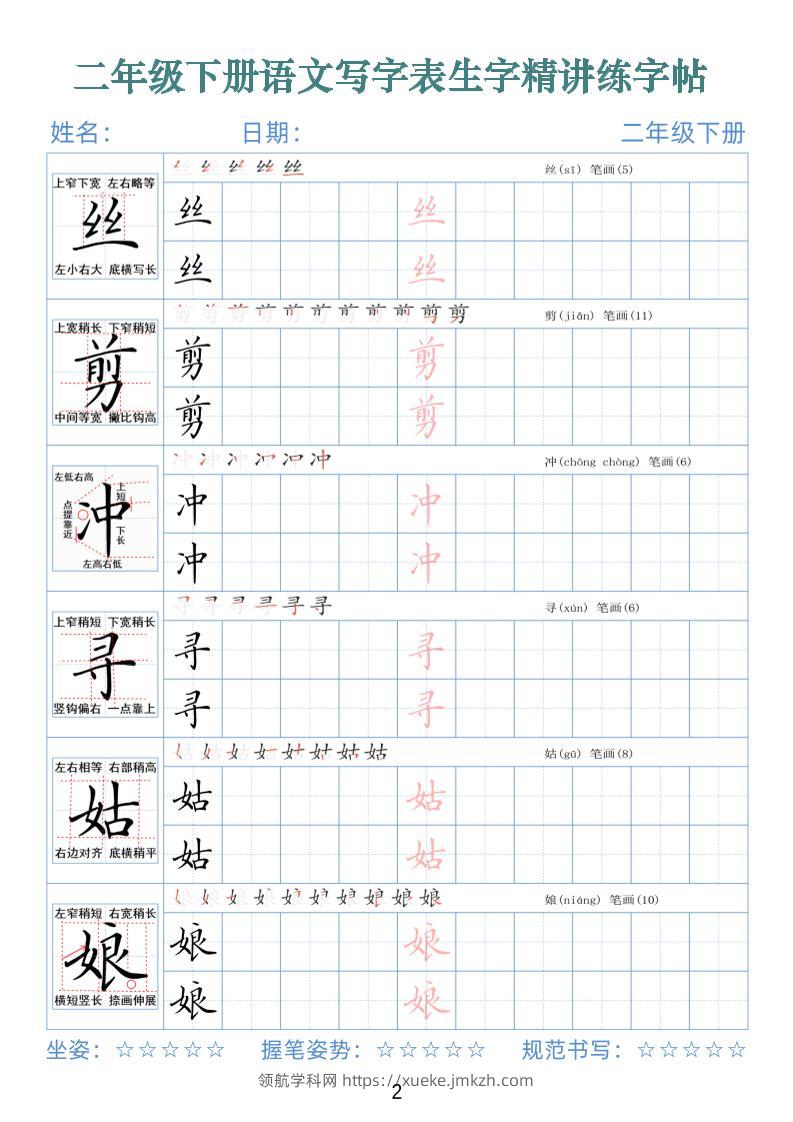 二年级下册语文写字表生字精讲练字帖
姓名： 日期： 二年级下册
丝(sī) 笔画(5)
上窄下宽 左右略等
丝
左小右大 底横写长
丝 丝
丝 丝
剪(jiǎn) 笔画(11)
上宽稍长 下窄稍短
剪
中间等宽 撇比钩高
剪 剪
剪 剪
冲(chōng chòng) 笔画(6)
左低右高
上短
点提靠近
冲
下长
左高右低
冲 冲
冲 冲
寻(xún) 笔画(6)
上窄稍短 下宽稍长
寻
竖钩偏右 一点靠上
寻 寻
寻 寻
姑(gū) 笔画(8)
左右相等 右部稍高
姑
右边对齐 底横稍平
姑 姑
姑 姑
娘(niáng) 笔画(10)
左窄稍短 右宽稍长
娘
横短竖长 捺画伸展
娘 娘
娘 娘
坐姿：☆☆☆☆☆ 握笔姿势：☆☆☆☆☆ 规范书写：☆☆☆☆☆
领航学科网 https://xueke.jmkzh.com
2